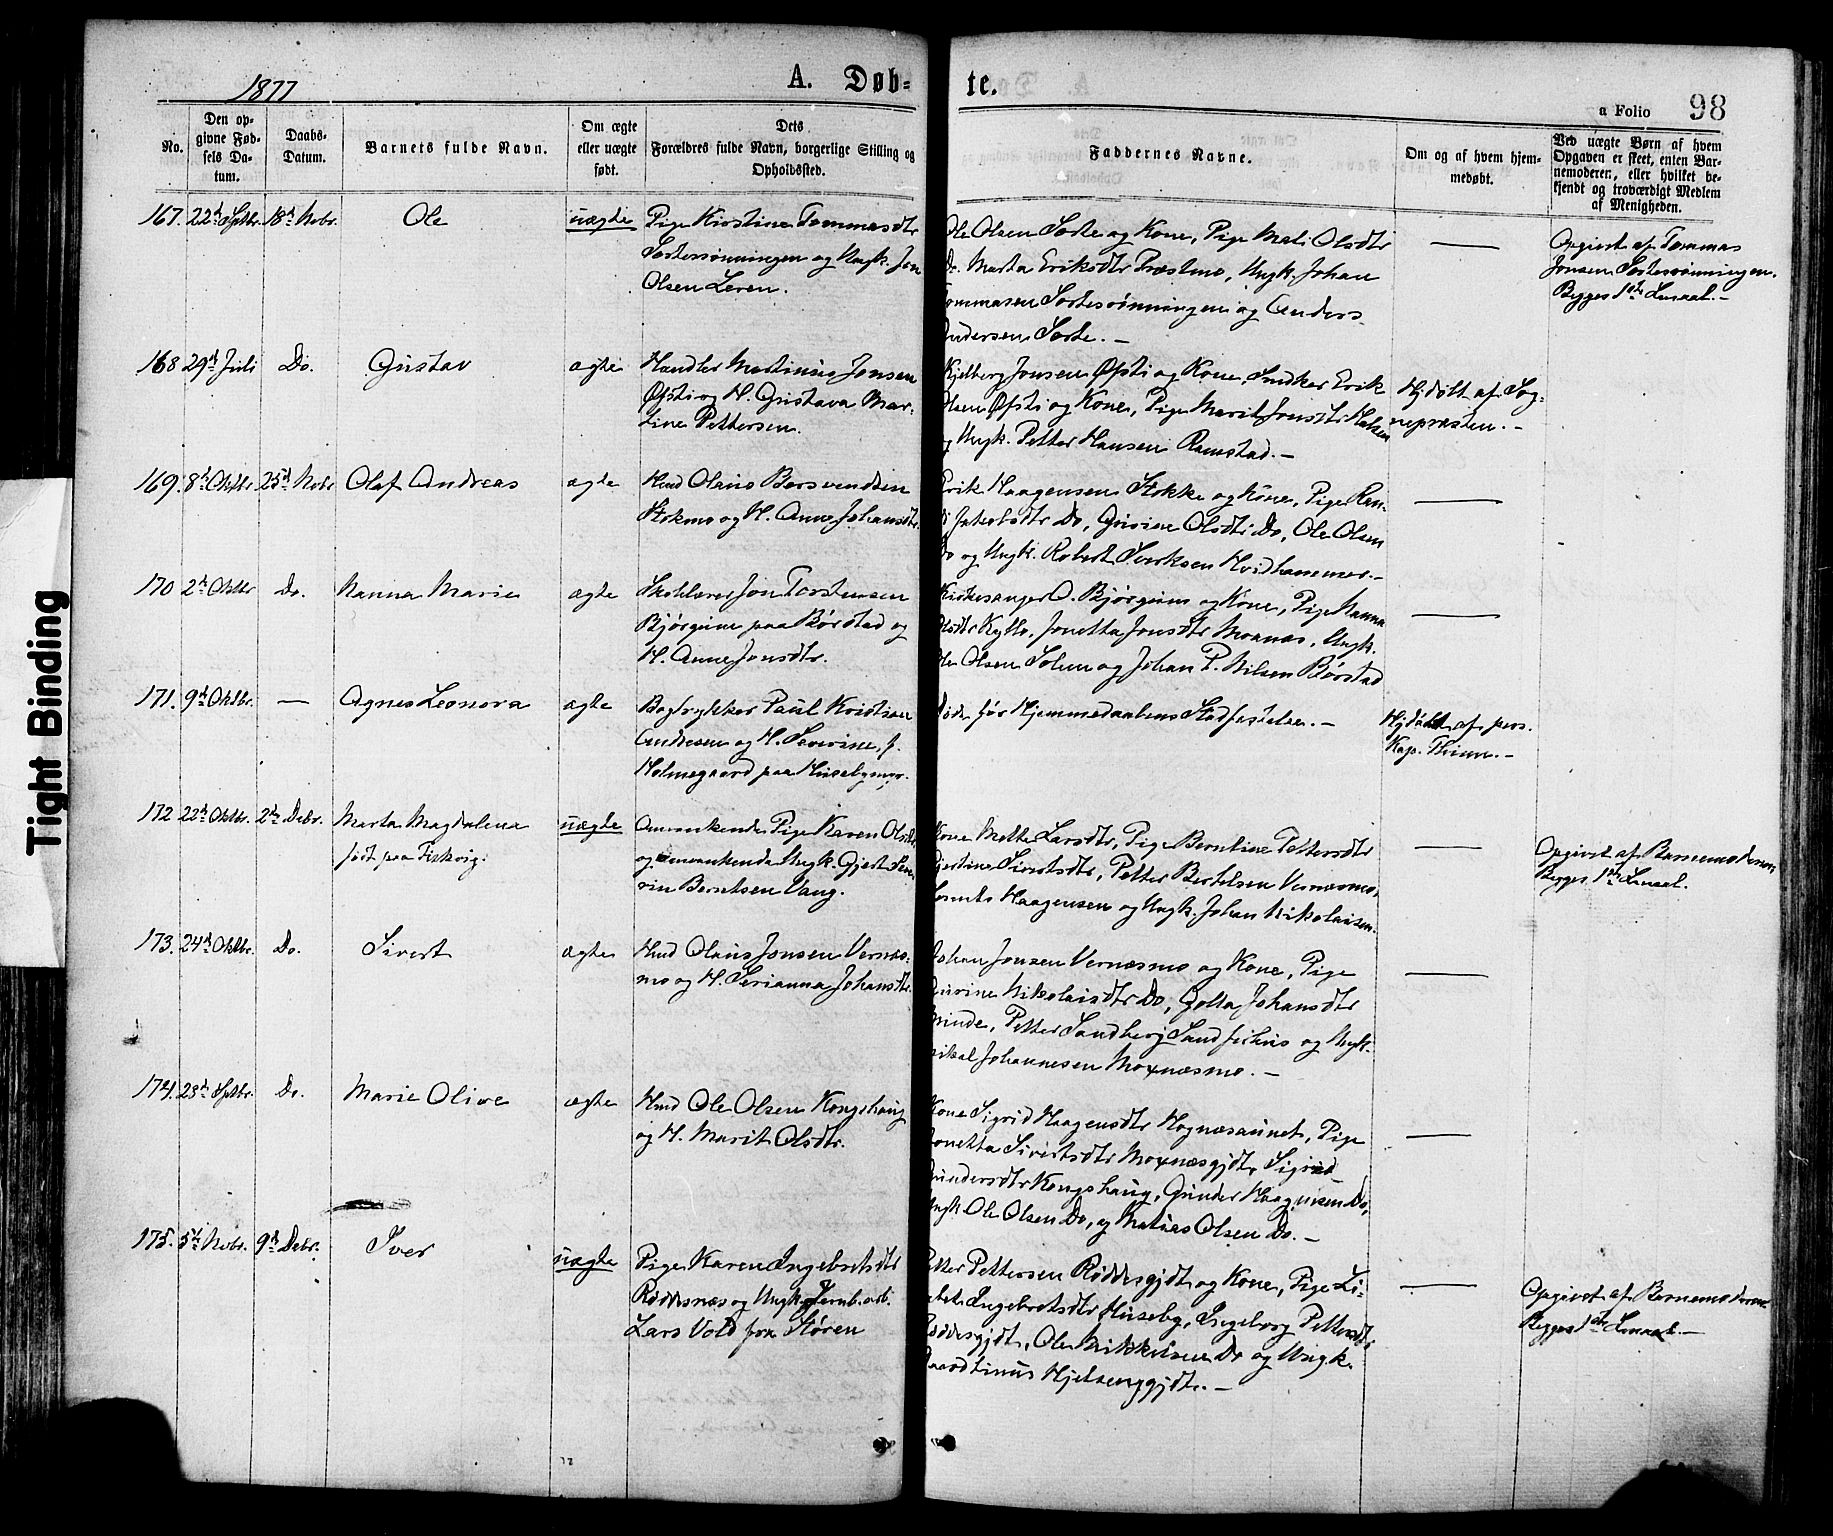 1877
A. Døb-
te.
a Folio 98
No.
Den op-
givne Fød-
sels Da-
tum.
Daabs-
Datum.
Barnets fulde Navn.
Om ægte
eller uægte
født.
Dets
Forældres fulde Navn, borgerlige Stilling og
Opholdssted.
Faddernes Navne.
Om og af hvem hjem-
medøbt.
Ved uægte Børn af hvem
Opgaven er skeet, enten Bar-
nemoderen, eller hvilket be-
kjendt og troværdigt Medlem
af Menigheden.
167. 22d Sptbr. 18d Novbr. Ole uægte
Pige Kirstine Tommasdtr
Sostersønningen og Ungk. Jon
Olsen Leren.
Ole Olsen Soste og Kone, Pige Mali Olsdtr
Do. Marta Eriksdtr Præstmo, Ungk. Johan
Tommasen Sostesrønningen og Anders
Andersen Soste. —
Opgivet af Tommas
Jonsen Sostesrønningen.
Begges 1ste Lmaal. —
168 29d Juli Do. Gustav ægte
Handler Martinus Jonsen
Øfsti og H. Gustava Mar-
tine Pettersen.
Kjelberg Jonsen Øfsti og Kone, Snedker Erik
Olsen Øfsti og Kone, Pige Marit Jonsdtr Halsen
og Ungk. Petter Hansen Ramstad. —
Hjdøbt af Sog-
nepræsten. —
169. 8d Oktbr. 25d Novbr Olaf Andreas ægte
Hmd Olaus Bersvendsen
Stokmo og H. Anne Johansdtr.
Erik Haagensen Stokke og Kone, Pige Ran-
di Jakobsdtr Do, Gurine Olsdtr Do, Ole Olsen
Do og Ungk. Robert Sverksen Hvidhammer. —
170 2d Oktbr Do. Nanna Marie ægte
Skolelærer Jon Torstensen
Bjørgum paa Børstad og
H. Anne Jonsdtr.
Kirkesanger O. Bjørgum og Kone, Pige Hanna
Olsdtr Kyllo, Jonetta Jonsdtr Moxnæs, Ungk.
Ole Olsen Solem og Johan P. Nilsen Børstad
171. 9d Oktbr. — Agnes Leonora ægte
Bogtrykker Paul Kristian
Andresen og H. Severine, f.
Holmegaard paa Husebymoe.
Døde før Hjemmedaabens Stadfæstelse. —
Hjdøbt af pers.
Kap. Thinn. —
172 22d Oktbr. 2d Decbr. Marta Magdalena uægte
født paa Fiskvig.
Omvankende Pige Karen Olsdtr
og omvankende Ungk. Gjert Sev-
rin Berntsen Vang.
Kone Mette Larsdtr, Pige Berntine Pettersdtr
Gjertine Sivertsdtr, Petter Bertelsen Vernæsmo,
Lornts Haagensen og Ungk. Johan Nikolaisen.
Opgivet af Barnemoderen,
Begges 1ste Lmaal.
173. 24d Oktbr. Do. Sivert ægte
Hmd Olaus Jonsen Vernæs-
mo og H. Serianna Johansdtr.
Johan Jonsen Vernæsmo og Kone, Pige
Gurine Nikolaisdtr Do, Golla Johansdtr
Minde, Petter Sandberg Sandferhus og Ungk.
Mikal Johannesen Moxnæsmo. —
174. 23d Sptbr. Do. Marie Olive ægte
Hmd Ole Olsen Kongshaug
og H. Marit Olsdtr.
Kone Sigrid Haagensdtr Hognæsaunet, Pige
Jonetta Sivertsdtr Moxnæsgjdt, Sigrid
Gundersdtr Kongshaug, Gunder Haagensen Do,
Ungk Ole Olsen Do, og Matias Olsen Do. —
175. 5d Novbr. 9d Decbr. Iver uægte
Pige Karen Ingebretsdtr
Röddesnæs og Ungk. Jernb.arb.
Lars Vold fra Støren
Petter Pettersen Röddesgjdt og Kone, Pige Li-
sabet Ingebretsdtr Huseby, Ingeborg Pettersdtr
Röddesgjdt, Ole Mikkelsen Do og Ungk.
Baardtinus Hjelsenggjdt. —
Opgivet af Barnemoderen.
Begges 1ste Lmaal. —
Tight Binding